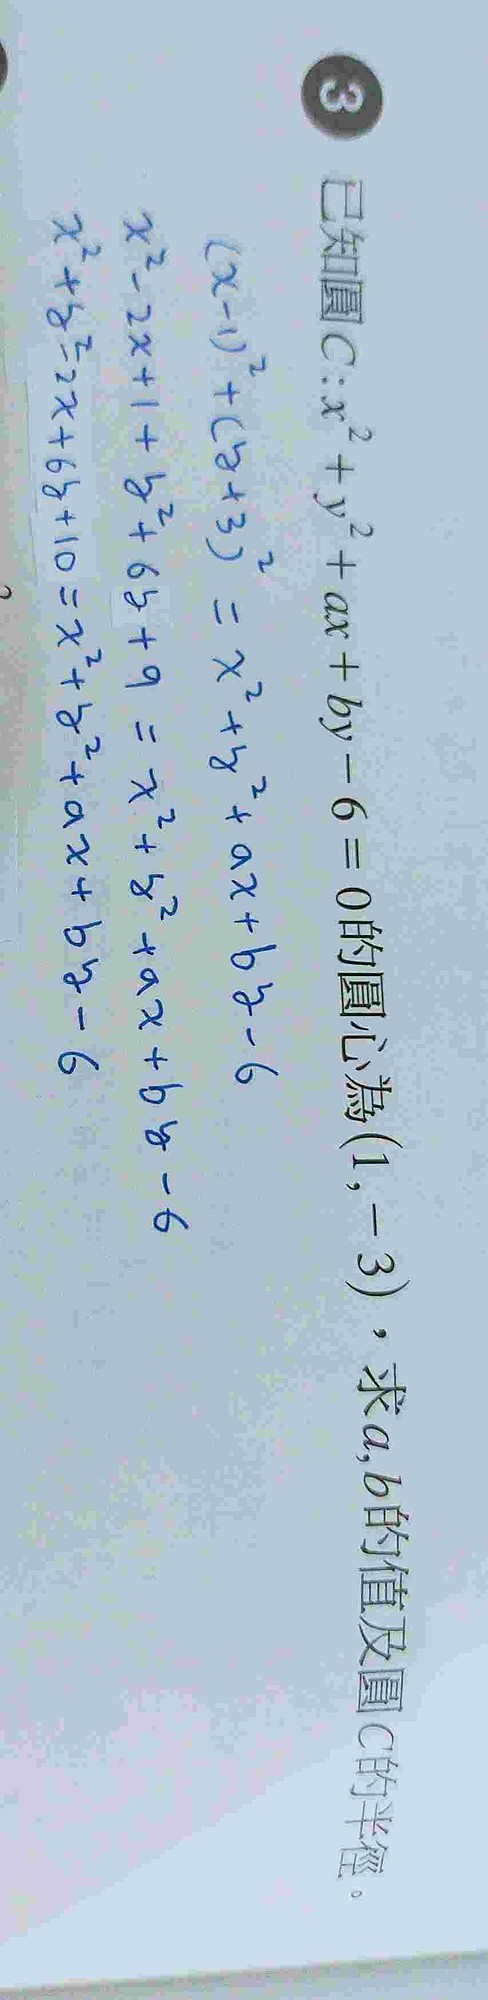 3 已知圓C:x²+y²+ax+by-6=0的圓心為(1,-3),求a,b的值及圓C的半徑。
(x-1)²+(y+3)²=x²+y²+ax+by-6
x²-2x+1+y²+6y+9=x²+y²+ax+by-6
x²+y²-2x+6y+10=x²+y²+ax+by-6